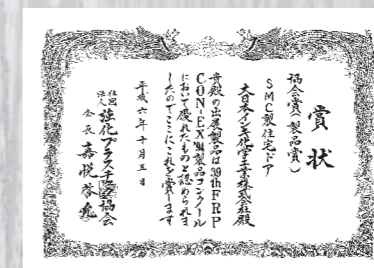 賞状
協会賞(製品賞)
SMC製住宅ドア
大日本インキ化学工業株式会社殿
貴殿の出展製品は39thFRP
CON-EX'94製品コンクール
において優れたものと認められま
したのでここにこれを賞します
平成六年十月五日
社団法人強化プラスチック協会
会長